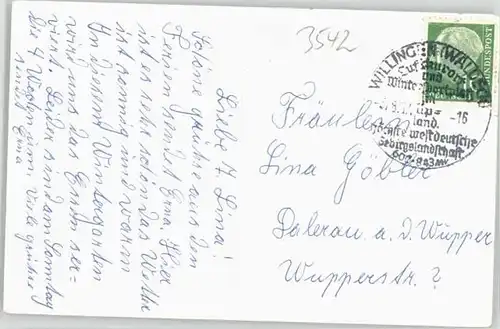 Liebe T. Lina!
Schöne Grüße aus den
Ferien send. Erna. Hier
ist es sehr schön das Wetter
ist sonnig und warm
In diesem Wintergarten
wird uns das Essen ser-
viert. Leider sind am Sonntag
die 4 Wochen um. Viele Grüße
sendet Erna
3542
WILLINGEN (WALDECK)
Luftkurort
und
Wintersportplatz
im
Up-
land.
Höchste westdeutsche
Gebirgslandschaft
600-843 m
-16
DEUTSCHE BUNDESPOST
Fräulein
Lina Göbler
Dalerau a. d. Wupper
Wupperstr. ?